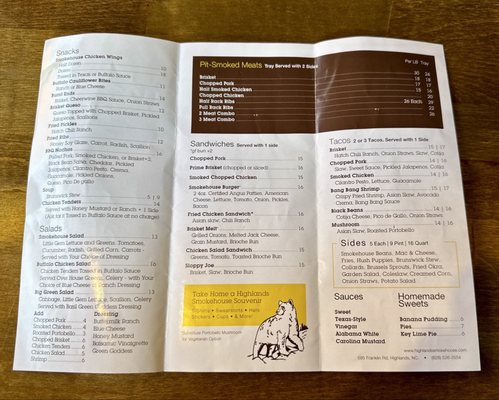 Snacks
Smokehouse Chicken Wings
Half Dozen 10
Dozen 18
Tossed in Texas or Buffalo Sauce
Buffalo Cauliflower Bites
Ranch or Blue Cheese 11
Burnt Ends 14
Brisket, Cheerwine BBQ Sauce, Onion Straws
Brisket Queso
Queso Topped with Chopped Brisket, Pickled
Jalapeños, Scallions
Fried Pickles
Hatch Chili Ranch 10
Fried Wontons
Honey Soy Glaze, Carrot, Radish, Scallion
BBQ Nachos
Pulled Pork, Smoked Chicken, or Brisket+3,
Black Bean Salsa, Cheddar, Pickled
Jalapeños, Cilantro Crema,
Guacamole, Pickled Onions,
Queso, Pico de gallo
Soup
Brunswick Stew
Chicken Tenders 14
Served with Honey Mustard or Ranch + 1 Side
(Ask for it Tossed in Buffalo Sauce at no charge)
Salads
Smokehouse Salad 13
Little Gem Lettuce and Greens, Tomatoes,
Cucumber, Radish, Grilled Corn, Carrots -
Served with Your Choice of Dressing
Buffalo Chicken Salad 16
Chicken Tenders Tossed in Buffalo Sauce
Served Over House Greens, Celery - with Your
Choice of Blue Cheese or Ranch Dressing
Big Green Salad 13
Cabbage, Little Gem Lettuce, Scallion, Celery
Served with Basil Green Goddess Dressing
Add
Chopped Pork 4
Smoked Chicken 4
Roasted Portobello
Chopped Brisket 6
Chicken Tenders 6
Chicken Salad 5
Shrimp 6
Dressing
Buttermilk Ranch
Blue Cheese
Honey Mustard
Balsamic Vinaigrette
Green Goddess
Pit-Smoked Meats Tray Served with 2 Sides
Per LB Tray
Brisket 30 24
Chopped Pork 18 18
Half Smoked Chicken 15 16
Chopped Chicken 20
Half Rack Ribs 20
Full Rack Ribs 36 Each
2 Meat Combo
3 Meat Combo
Sandwiches Served with 1 side
*gf bun +2
Chopped Pork 15
Prime Brisket (chopped or sliced) 16
Smoked Chopped Chicken 15
Smokehouse Burger* 16
2 4oz. Certified Angus Patties, American
Cheese, Lettuce, Tomato, Onion, Pickles
Sauce
Fried Chicken Sandwich* 16
Asian slaw, Chili Ranch
Brisket Melt 16
Grilled Onions, Melted Jack Cheese,
Grain Mustard, Brioche Bun
Chicken Salad Sandwich 15
Greens, Tomato, Toasted Brioche Bun
Sloppy Joe 15
Brisket, Slaw, Brioche Bun
Take Home a Highlands
Smokehouse Souvenir
T-Shirts • Sweatshirts • Hats
Stickers • Cups • & More!
*Substitute Portobello Mushroom
for Vegetarian Option
Tacos 2 or 3 Tacos, Served with 1 Side
Brisket 15 | 17
Hatch Chili Ranch, Onion, Slaw, Cotija
Chopped Pork 14 | 16
Slaw, Sweet Sauce, Pickled Jalapenos, Cotija
Smoked Chicken 14 | 16
Cilantro Pesto, Lettuce, Guacamole
Bang Bang Shrimp 15 | 17
Crispy Fried Shrimp, Asian Slaw, Avocado
Crema, Bang Bang Sauce
Black Beans 14 | 16
Cotija Cheese, Pico de Gallo, Onion Straws
Mushroom 14 | 16
Asian Slaw, Roasted Portobello
Sides 5 Each | 9 Pint | 16 Quart
Smokehouse Beans, Mac & Cheese,
Fries, Hush Puppies, Brunswick Stew,
Collards, Brussels Sprouts, Fried Okra,
Garden Salad, Coleslaw, Creamed Corn,
Onion Straws, Potato Salad
Sauces
Sweet
Texas-Style
Vinegar
Alabama White
Carolina Mustard
Homemade
Sweets
Banana Pudding 6
Pies
Key Lime Pie 6
www.highlandssmokehouse.com
595 Franklin Rd, Highlands, NC • (828) 526-3554